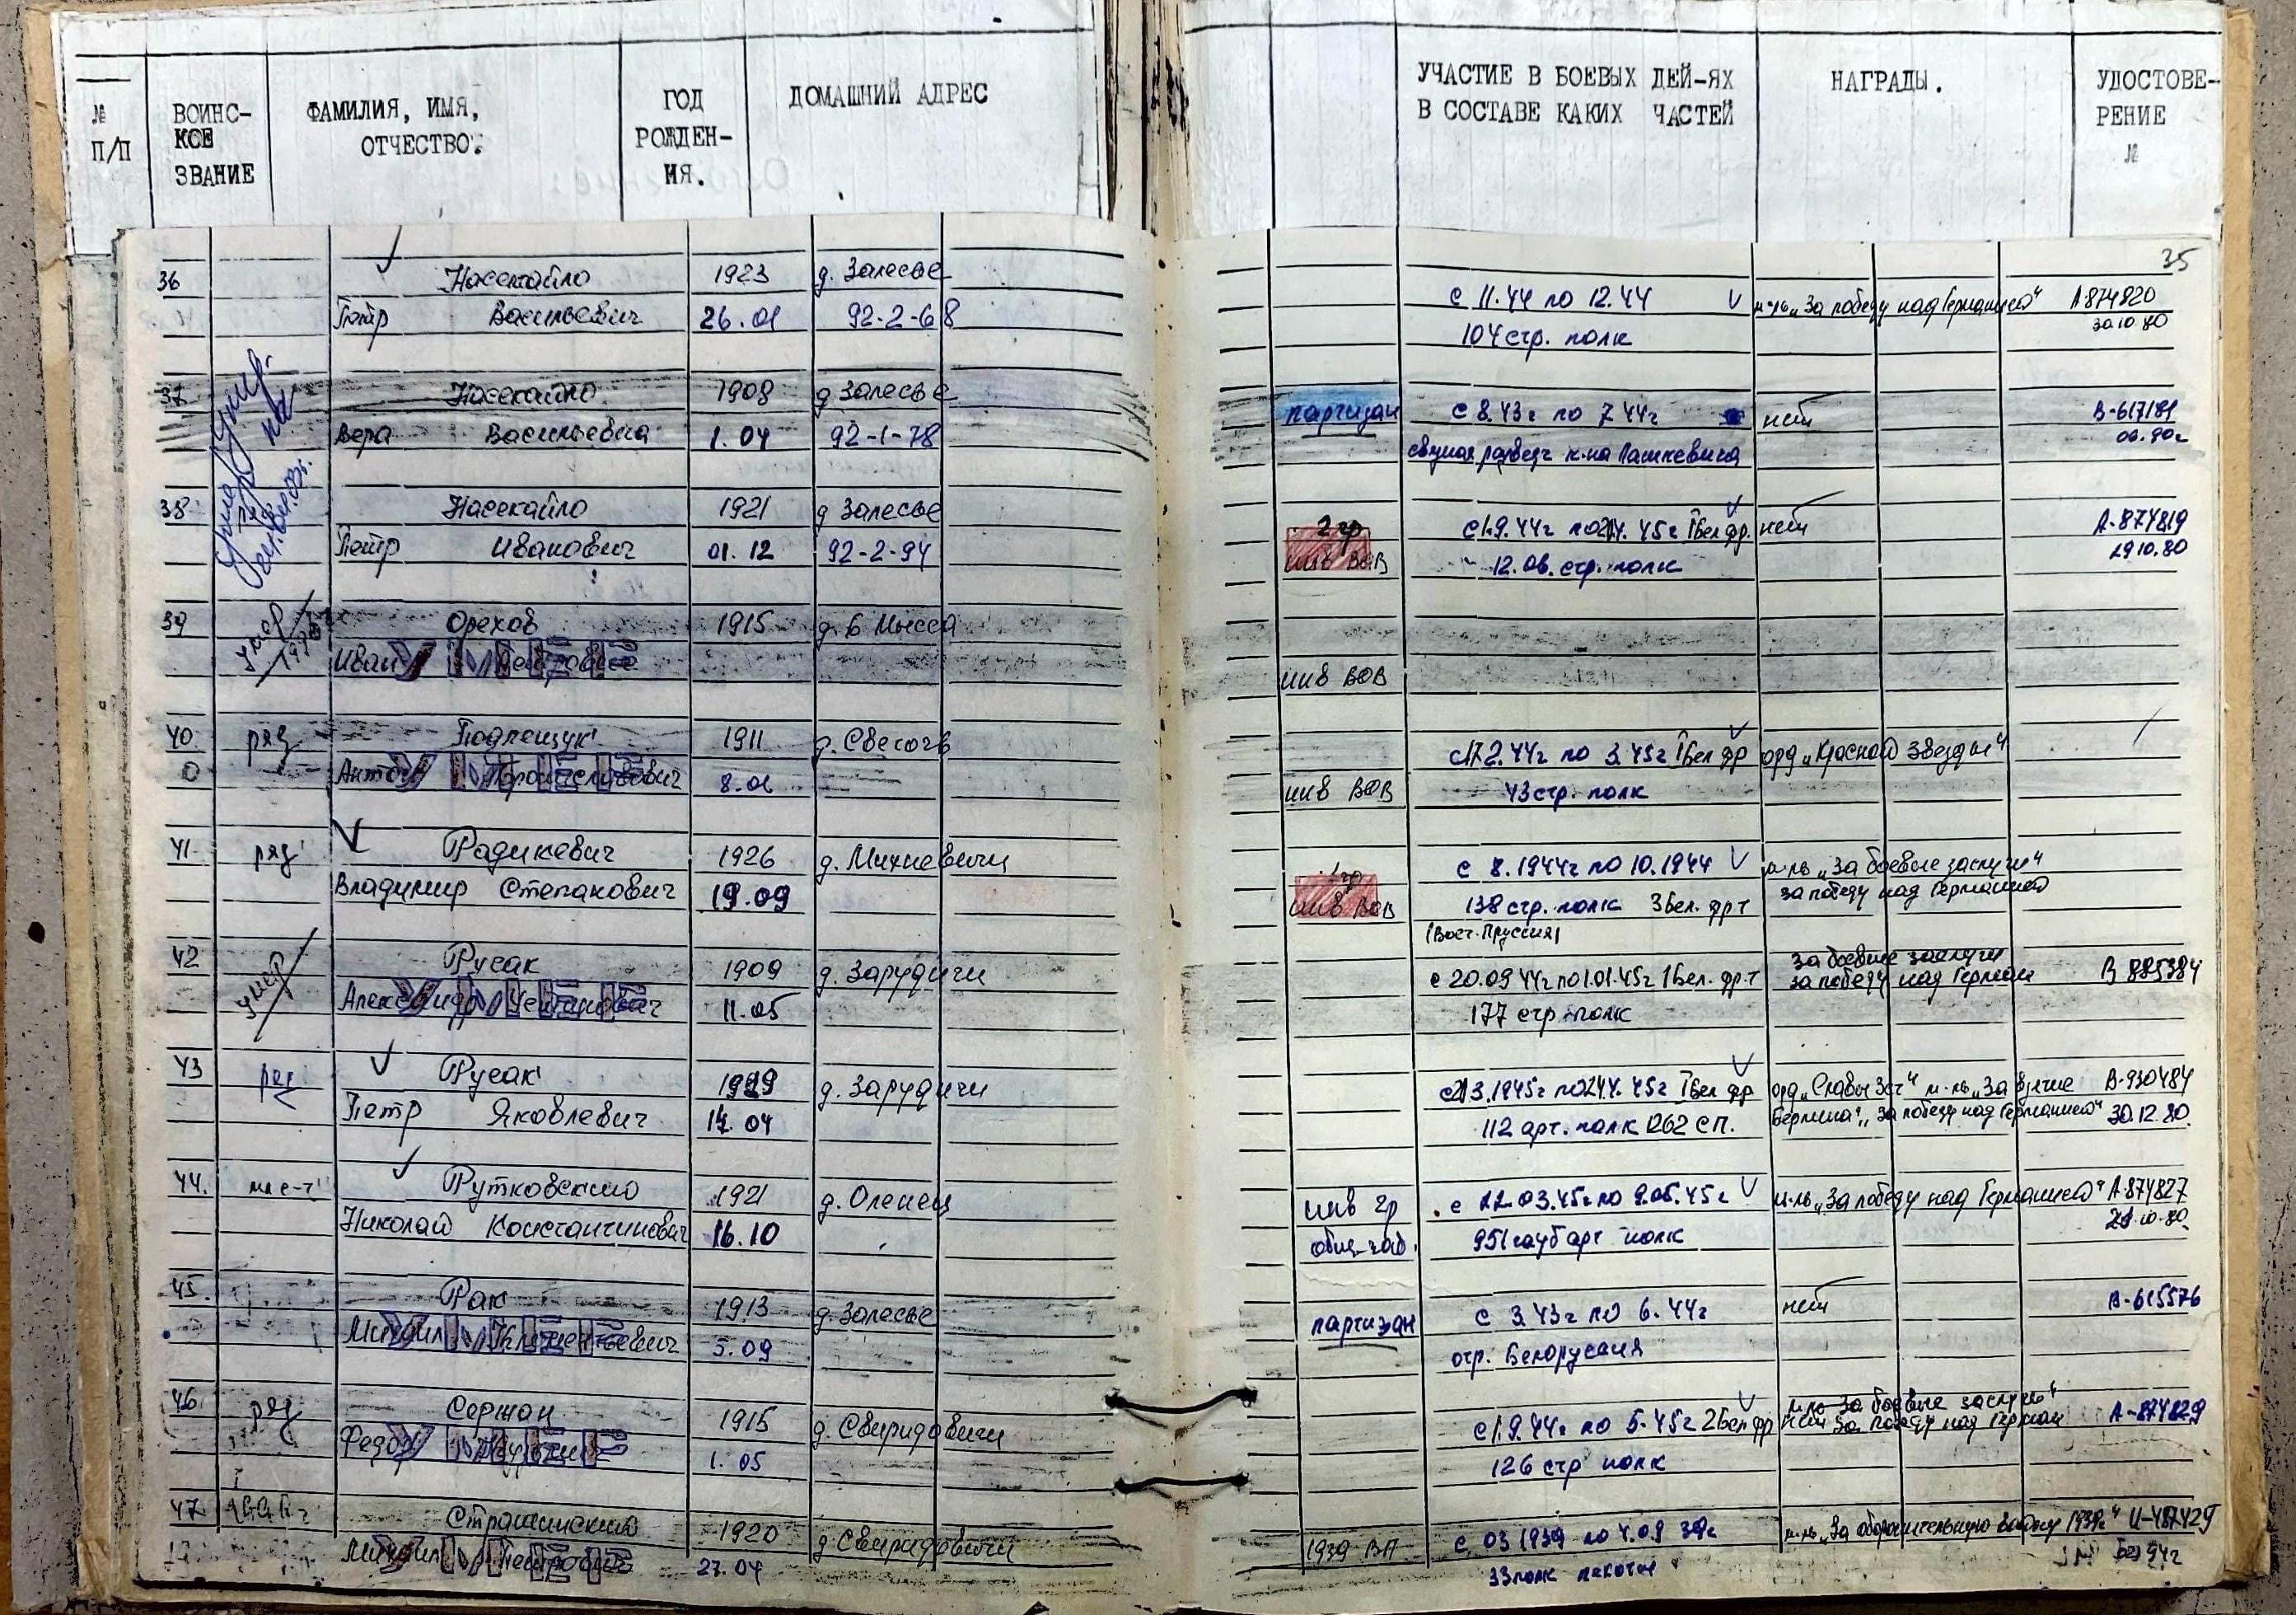 № П/П
ВОИНС-
КОЕ
ЗВАНИЕ
ФАМИЛИЯ, ИМЯ,
ОТЧЕСТВО.
ГОД
РОЖДЕН-
ИЯ.
ДОМАШНИЙ АДРЕС
УЧАСТИЕ В БОЕВЫХ ДЕЙ-ЯХ
В СОСТАВЕ КАКИХ ЧАСТЕЙ
НАГРАДЫ.
УДОСТОВЕ-
РЕНИЕ
№
35
36 Насекайло 1923 д. Залесье
Петр Васильевич 26.01 92-2-68
с 11.44 по 12.44 м-ль „За победу над Германией“ А-874820
104 стр. полк 30.10.80
37 Насекайло 1908 д Залесье
Вера Васильевна 1.04 92-1-78
партизан с 8.43г по 7 44г нет В-617181
развед к-на Пашкевича
38 Насекайло 1921 д Залесье
Петр Иванович 01.12 92-2-94
2 гр
инв ВОВ 12.06. стр. полк
нет А-874819
29.10.80
39 умер Орехов 1915 д.
Иван Петрович
УМЕР
инв ВОВ
40 ряд Подлещук 1911 д. Свегочь
Антон 8.01
УМЕР
с 17 2.44г по 3.45г 1 Бел фр орд „Красной Звезды“
инв ВОВ 43 стр. полк
41 ряд Радикевич 1926 д. Михневичи
Владимир Степанович 19.09
с 8.1944г по 10.1944 м-ль „За боевые заслуги“
за победу над Германией
1 гр
инв ВОВ 138 стр. полк 3 Бел. фр т
(Вост. Пруссия)
42 умер Русак 1909 д. Зарудичи
Александр 11.05
УМЕР
за боевые заслуги
с 20.09 44г по 1.01.45г 1 Бел. фр.т за победу над Герман В 885384
177 стр полк
43 ряд Русак 1929 д. Зарудичи
Петр Яковлевич 14.04
с 21 3.1945г по 24 4. 45г 1 Бел фр орд „Славы 3 ст“ м-ль „За взятие В-930484
112 арт. полк 1262 СП. Берлина“, „За победу над Германией“ 30.12.80.
44. мл с-т Рутковский 1921 д. Оленец
Николай Константинович 16.10
инв 2гр с 22.03.45г по 9.05.45г м-ль „За победу над Германией“ А-874827
общ. заб. 951 гауб арт полк 29.10.80
45. Рак 1913 д. Залесье
Михаил Клементьевич 5.09
УМЕР
партизан с 3.43г по 6.44г нет В-615576
отр. Белоруссия
46 ряд Сержан 1915 д. Свиридовичи
Федор 1.05
УМЕР
м-ль За боевые заслуги“
с 1.9.44г по 5.45г 2 Бел фр нет За победу над Герман А-874829
126 стр полк
47 Страшинский 1920 д Свиридовичи
Михаил Петрович 27.04
УМЕР
1939 ВП с 03 1939 по 4.09 39г м-ль „За оборонительную войну 1939г“ И-487429
33 полк пехоты